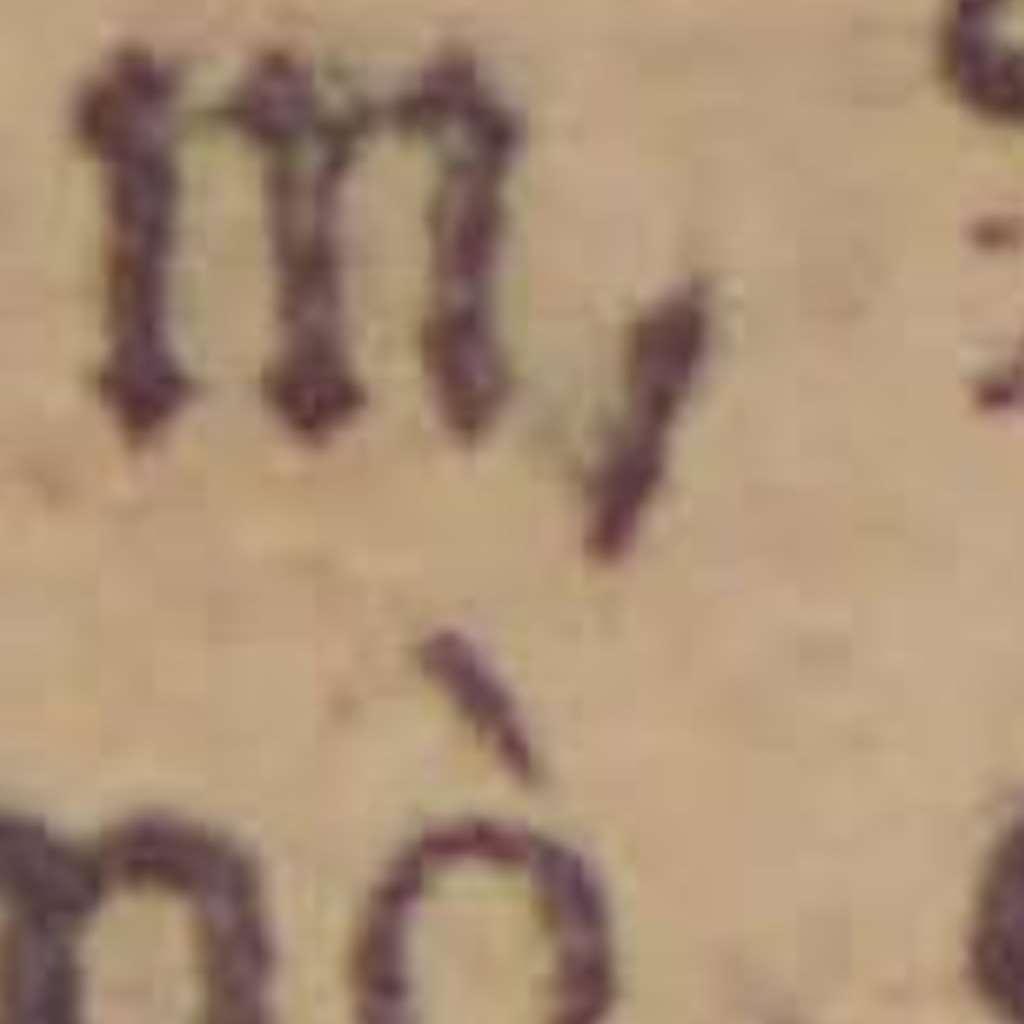 m,
nò